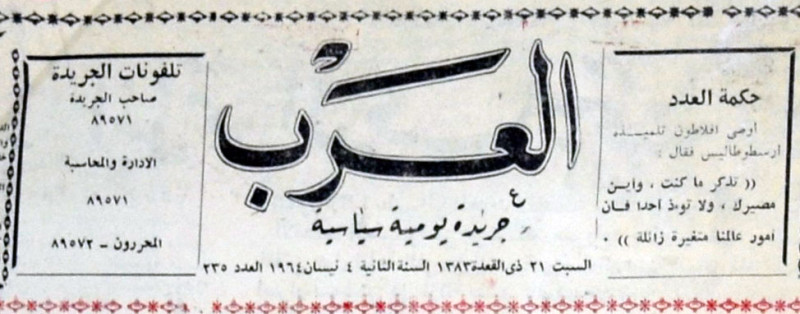 حكمة العدد
اوصى افلاطون تلميذه
ارسطوطاليس فقال :
(( تذكر ما كنت ، واين
مصيرك ، ولا توءذ أحدا فان
امور عالمنا متغيرة زائلة )) ٠
العَرَب
جريدة يومية سياسية
السبت ٢١ ذى القعدة ١٣٨٣ السنة الثانية ٤ نيسان ١٩٦٤ العدد ٢٣٥
تلفونات الجريدة
صاحب الجريدة
٨٩٥٧١
الادارة والمحاسبة
٨٩٥٧١
المحررون - ٨٩٥٧٢